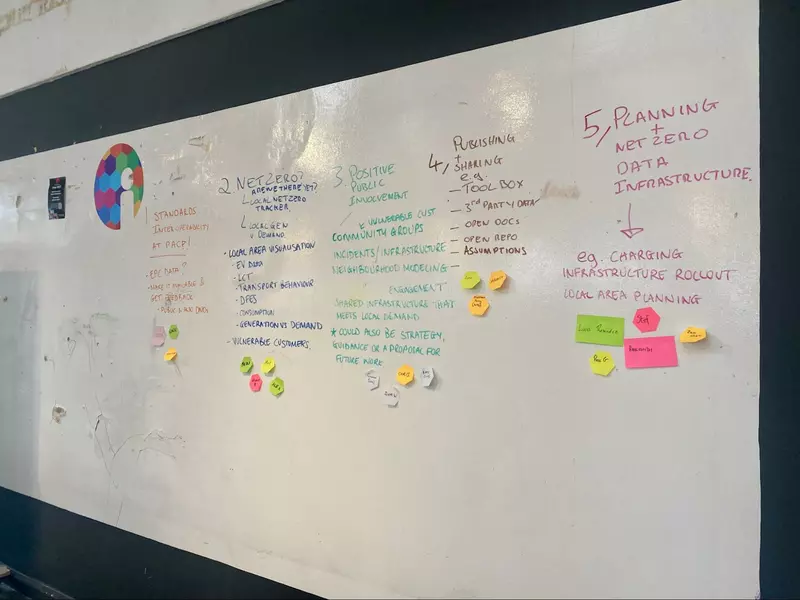 i
1
STANDARDS
INTEROPERABILITY
AT PACE!
- EPC DATA
- MAKE IT AVAILABLE &
GET FEEDBACK
2. NET ZERO?
ARE WE THERE YET?
LOCAL NET ZERO
TRACKER.
LOCAL GEN
V DEMAND
- LOCAL AREA VISUALISATION
- EV DATA
- LCT
- TRANSPORT BEHAVIOUR
- DFES
- CONSUMPTION
- GENERATION VS DEMAND
- VULNERABLE CUSTOMERS.
3. POSITIVE
PUBLIC
INVOLVEMENT
VULNERABLE CUST
COMMUNITY GROUPS
INCIDENTS/INFRASTRUCTURE
NEIGHBOURHOOD MODELING
ENGAGEMENT
SHARED INFRASTRUCTURE THAT
MEETS LOCAL DEMAND
* COULD ALSO BE STRATEGY,
GUIDANCE OR A PROPOSAL FOR
FUTURE WORK
CHRIS
4, PUBLISHING
+
SHARING
e.g.
- TOOL BOX
- 3RD PARTY DATA
- OPEN DOCS
- OPEN REPO
- ASSUMPTIONS
-
5, PLANNING
+
NET ZERO
DATA
INFRASTRUCTURE.
e.g. CHARGING
INFRASTRUCTURE ROLLOUT
LOCAL AREA PLANNING